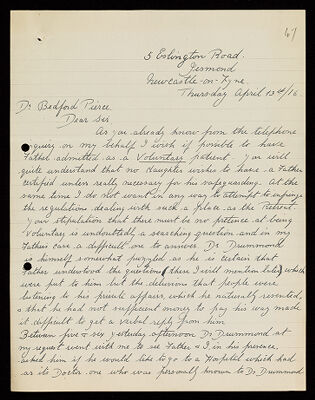 47
5 Eslington Road.
Jesmond
Newcastle-on-Tyne.
Thursday April 13th/16
Dr Bedford Pierce
Dear Sir
As you already know from the telephone
enquiry on my behalf I wish if possible to have
Father admitted as a Voluntary patient. You will
quite understand that no daughter wishes to have a Father
certified unless really necessary for his safeguarding. At the
same time I do not want in any way to attempt to infringe
the regulations dealing with such a place as the Retreat.
Your stipulation that there must be no pretence at being
Voluntary is undoubtedly a searching question and in my
Father's case a difficult one to answer. Dr Drummond
is himself somewhat puzzled as he is certain that
Father understood the questions (these I will mention later) which
were put to him but the delusion that people were
listening to his private affairs, which he naturally resented,
& that he had not sufficient money to pay his way made
it difficult to get a verbal reply from him
Between five & six yesterday afternoon Dr Drummond at
my request went with me to see Father & I, in his presence,
asked him if he would like to go to a Hospital which had
as its Doctor one who was personally known to Dr Drummond